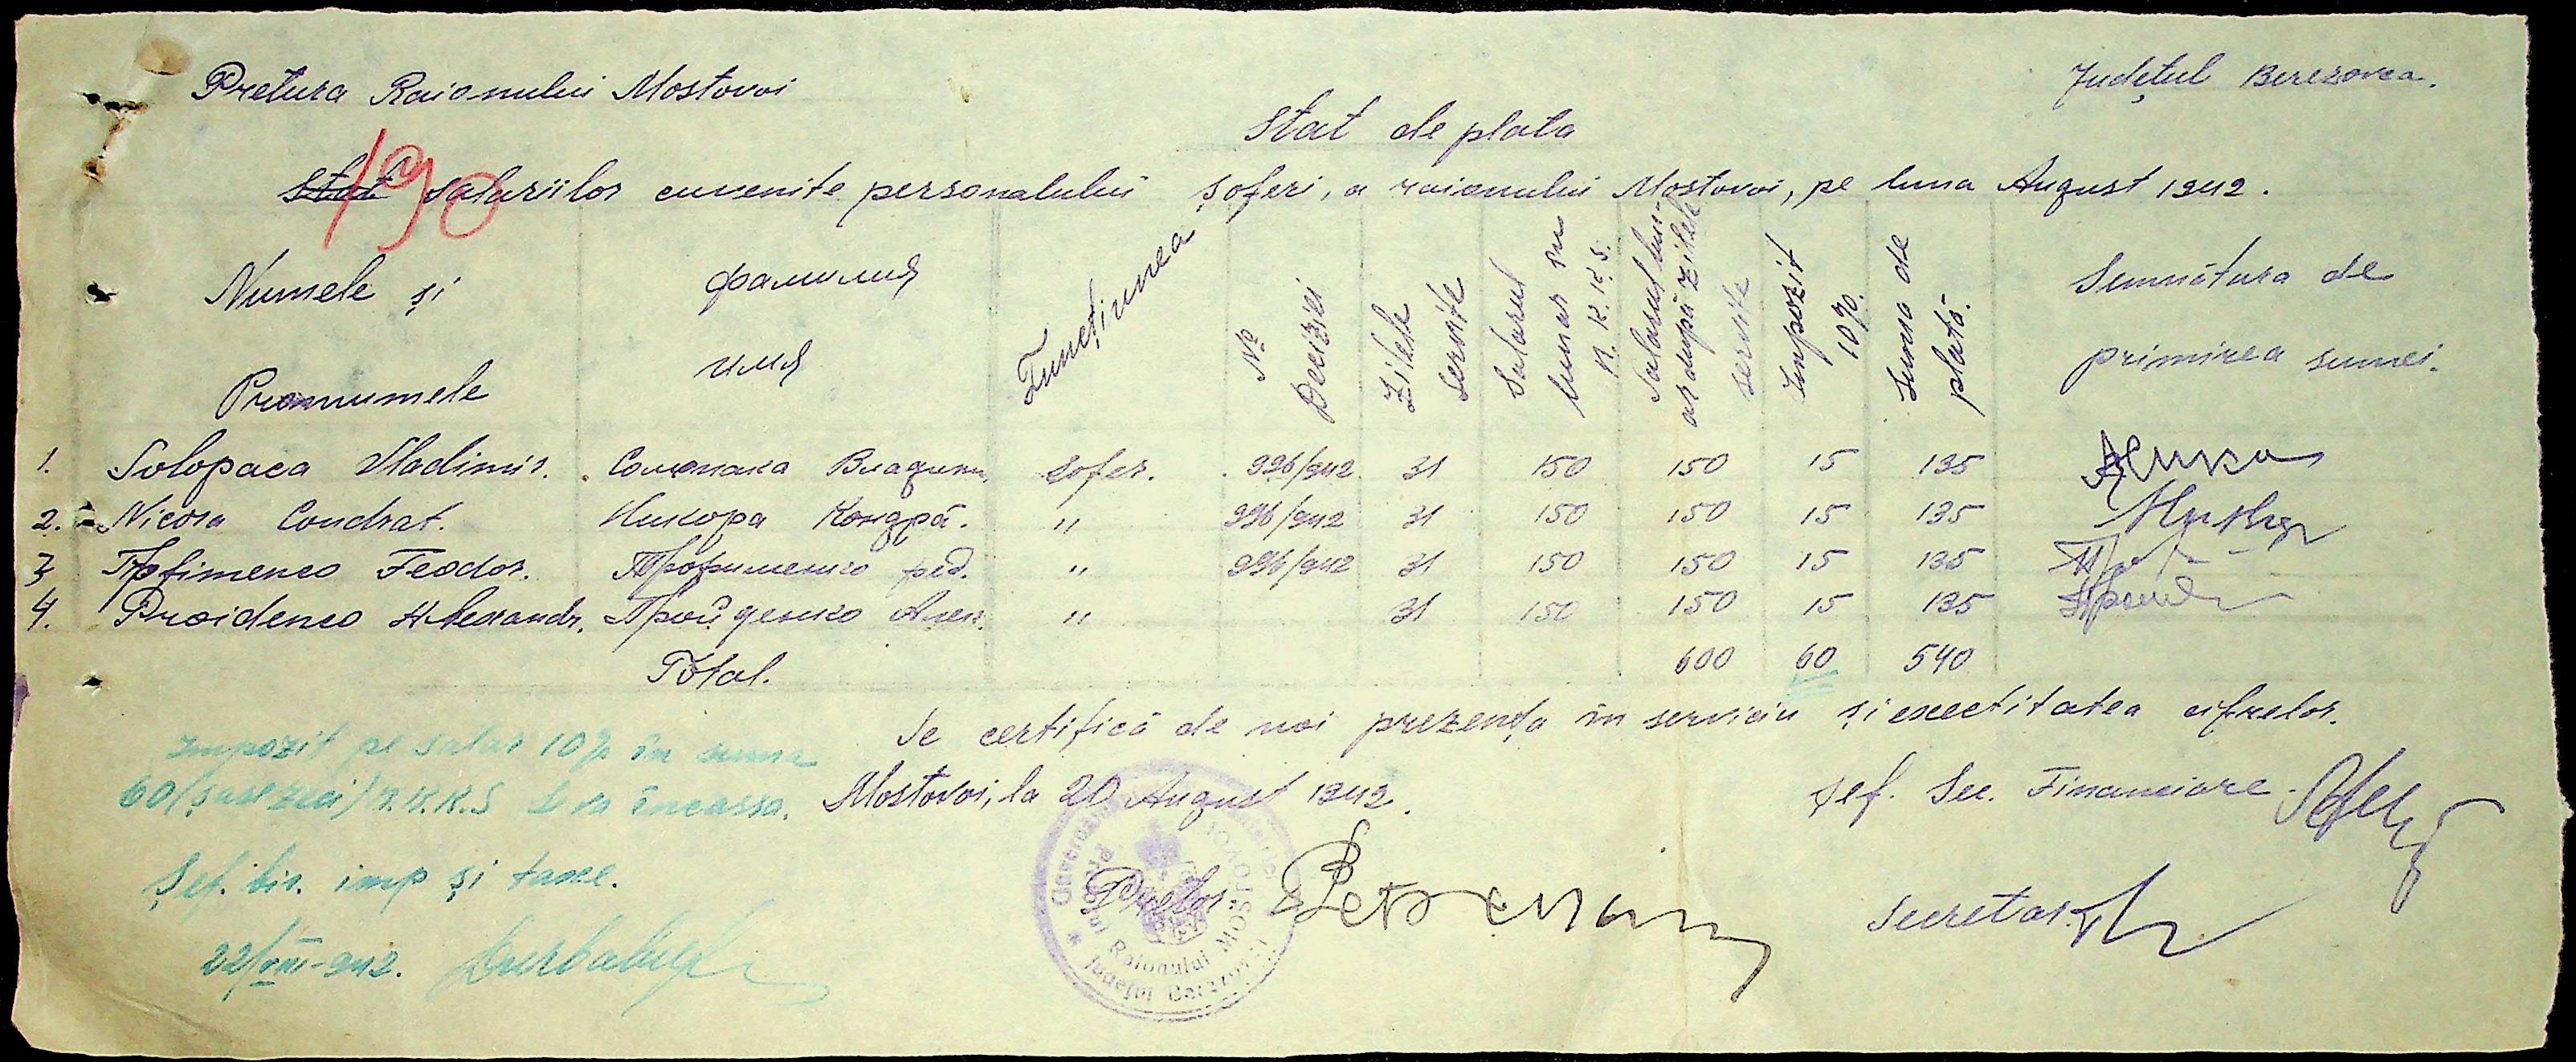 Pretura Raionului Mostovoi
Județul Berezovca.
Stat de plata
190
Stat salariilor cuvenite personalului șoferi, a raionului Mostovoi, pe luna August 1942.
Numele și Pronumele
фамилия имя
Funcțiunea
№ Deciziei
Zilele servite
Salarul lunar în R.K.K.S.
Salarul lunar după zilele servite
Impozit 10%.
Suma de plată.
Semnătura de primirea sumei.
1. Solopaca Vladimir. Солопака Владим. Șofer. 996/942 31 150 150 15 135
2. Nicora Condrat. Никора Кондра. " 996/942 31 150 150 15 135
3 Trofimenco Feodor. Трофименко фед. " 996/942 31 150 150 15 135
4. Proidenco Alexandr. Пройденко Алек. " 31 150 150 15 135
Total. 600 60 540
Se certifică de noi prezența în serviciu și exectitatea cifrelor.
Impozit pe salar 10% în suma
60 (șasezeci) R.K.K.S s-a încassa.
Mostovoi, la 20 August 1942.
Șef. Sec. Financiare.
Șef. bir. imp și taxe.
Pretor
Secretar
22/VIII-942.
Pretura Raionului MOSTOVOI
Județul Berezovca